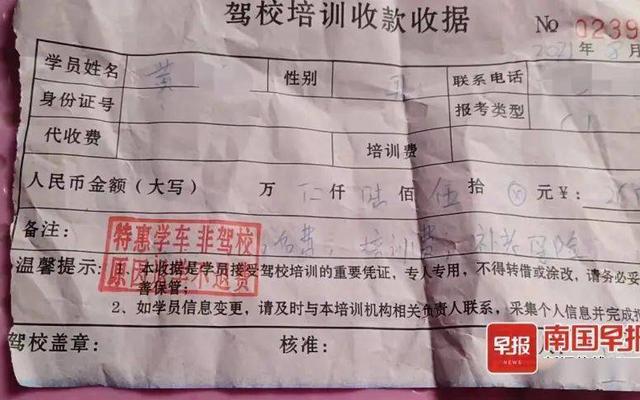 驾校培训收款收据
№ 0239
2021年8月
学员姓名 黄 性别 联系电话
身份证号 报考类型 C1
代收费 培训费
人民币金额（大写） 万 仟 陆 佰 伍 拾 元 ¥：
备注： 培训费， 补考保险
特惠学车非驾校
原因 不退费
温馨提示：1、本收据是学员接受驾校培训的重要凭证，专人专用，不得转借或涂改，请务必妥
善保管；
2、如学员信息变更，请及时与本培训机构相关负责人联系，采集个人信息并完成
驾校盖章： 核准：
早报 南国早报